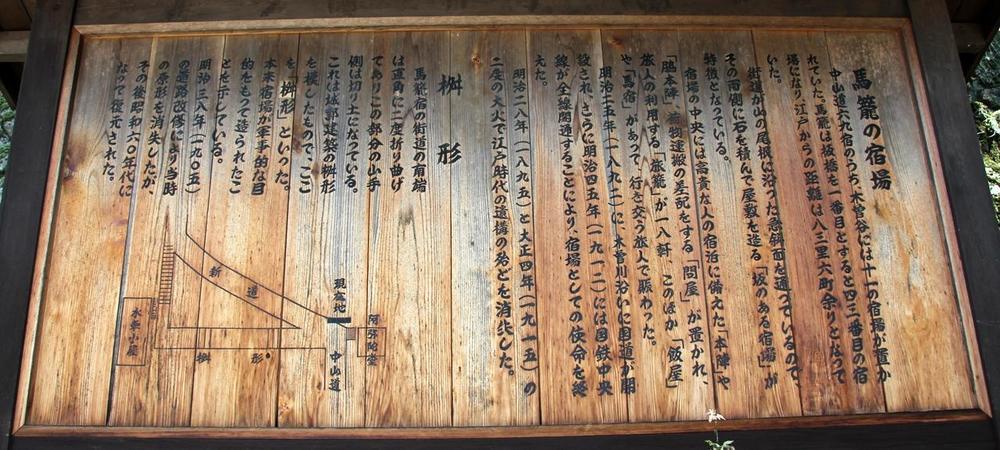 馬籠の宿場
中山道六九宿のうち、木曽谷には十一の宿場が置か
れていた。馬籠は板橋を一番目とすると四三番目の宿
場になり、江戸からの距離は八三里六町余りとなって
いた。
街道が山の尾根に沿った急斜面を通っているので、
その両側に石を積んで屋敷を造る「坂のある宿場」が
特徴となっている。
宿場の中央には高貴な人の宿泊に備えた「本陣」や
「脇本陣」、荷物運搬の差配をする「問屋」が置かれ、
旅人の利用する「旅籠」が一八軒、このほか「飯屋」
や「馬宿」があって、行き交う旅人で賑わった。
明治二五年(一八九二)に、木曽川沿いに国道が開
設され、さらに明治四五年(一九一二)には国鉄中央
線が全線開通することにより、宿場としての使命を終
えた。
明治二八年(一八九五)と大正四年(一九一五)の
二度の大火で江戸時代の遺構の殆どを消失した。
桝形
馬籠宿の街道の有端
は直角に二度折り曲げ
てありこの部分の山手
側は切り土になっている。
これは城郭建築の桝形
を模したもので、ここ
を「桝形」といった。
本来宿場が軍事的な目
的をもって造られたこ
とを示している。
明治三八年(一九〇五)
の道路改修により当時
の原形を消失したが、
その後昭和六〇年代に
なって復元された。
新道
現在地
阿弥陀堂
中山道
桝形
水車小屋